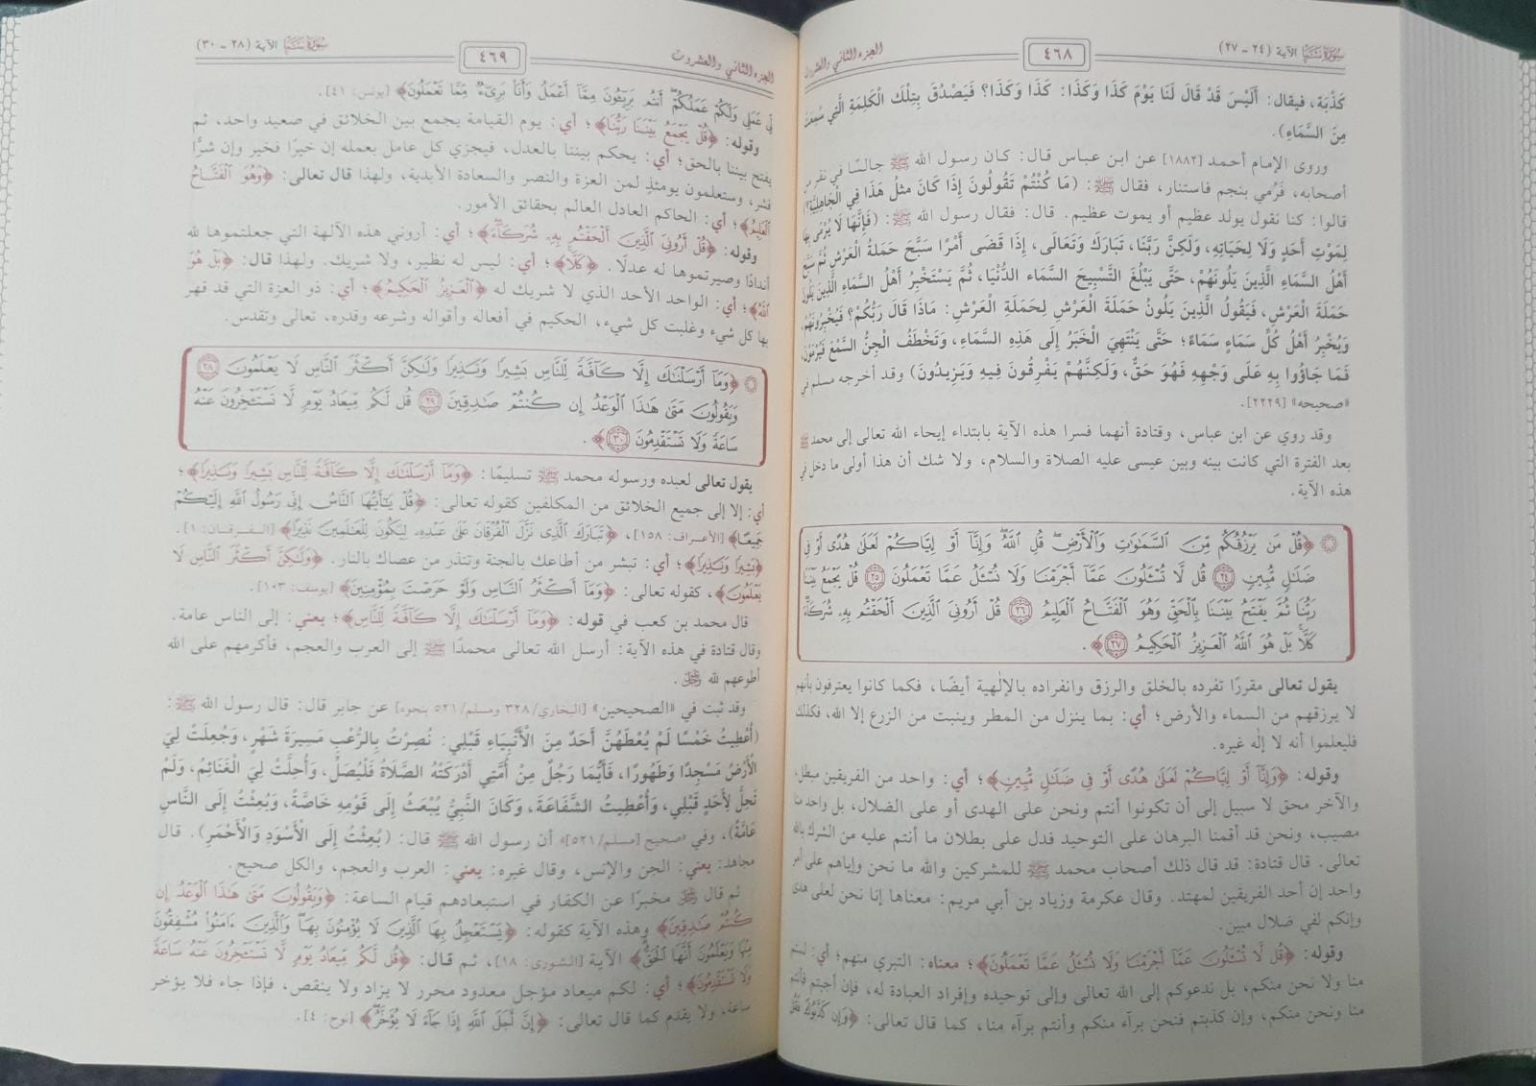 سورة سبأ الآية (٢٤ - ٢٧)
٤٦٨
الجزء الثاني والعشرون
كَذْبَة، فيقال: أَلَيْسَ قَدْ قَالَ لَنَا يَوْمَ كَذَا وَكَذَا: كَذَا وَكَذَا؟ فَيَصْدُقُ بِتِلْكَ الْكَلِمَةِ الَّتِي سُمِعَتْ
مِنَ السَّمَاءِ).
وروى الإمام أحمد [١٨٨٢] عن ابن عباس قال: كان رسول الله ﷺ جالسًا في نفر من
أصحابه، فَرُمي بنجم فاستنار، فقال ﷺ: (مَا كُنْتُمْ تَقُولُونَ إِذَا كَانَ مثلُ هَذَا فِي الْجَاهِلِيَّةِ؟)
قالوا: كنا نقول يولد عظيم أو يموت عظيم. قال: فقال رسول الله ﷺ: (فَإِنَّهَا لَا يُرْمَى بِهَا
لِمَوْتِ أَحَدٍ وَلَا لِحَيَاتِهِ، وَلَكِنَّ رَبَّنَا، تَبَارَكَ وَتَعَالَى، إِذَا قَضَى أَمْرًا سَبَّحَ حَمَلَةُ الْعَرْشِ ثُمَّ سَبَّحَ
أَهْلُ السَّمَاءِ الَّذِينَ يَلُونَهُمْ، حَتَّى يَبْلُغَ التَّسْبِيحَ السَّمَاء الدُّنْيَا، ثُمَّ يَسْتَخْبِرُ أَهْلُ السَّمَاءِ الَّذِينَ يَلُونَ
حَمَلَةَ الْعَرْشِ، فَيَقُولُ الَّذِينَ يَلُونَ حَمَلَةَ الْعَرْشِ لِحَمَلَةِ الْعَرْشِ: مَاذَا قَالَ رَبُّكُمْ؟ فَيُخْبِرُونَهُمْ،
وَيُخْبِرُ أَهْلُ كُلِّ سَمَاءٍ سَمَاءً؛ حَتَّى يَنْتَهِيَ الْخَبَرُ إِلَى هَذِهِ السَّمَاءِ، وَتَخْطَفُ الْجِنُّ السَّمْعَ فَيُرْمَوْنَ،
فَمَا جَاؤُوا بِهِ عَلَى وَجْهِهِ فَهُوَ حَقٌّ، وَلَكِنَّهُمْ يَفْرِقُونَ فِيهِ وَيَزِيدُونَ) وقد أخرجه مسلم في
«صحيحه» [٢٢٢٩].
وقد روي عن ابن عباس، وقتادة أنهما فسرا هذه الآية بابتداء إيحاء الله تعالى إلى محمد ﷺ
بعد الفترة التي كانت بينه وبين عيسى عليه الصلاة والسلام، ولا شك أن هذا أولى ما دخل في
هذه الآية.
﴿قُلْ مَن يَرْزُقُكُم مِّنَ ٱلسَّمَٰوَٰتِ وَٱلْأَرْضِ قُلِ ٱللَّهُ وَإِنَّآ أَوْ إِيَّاكُمْ لَعَلَىٰ هُدًى أَوْ فِى
ضَلَٰلٍ مُّبِينٍ ٢٤ قُل لَّا تُسْـَٔلُونَ عَمَّآ أَجْرَمْنَا وَلَا نُسْـَٔلُ عَمَّا تَعْمَلُونَ ٢٥ قُلْ يَجْمَعُ بَيْنَنَا
رَبُّنَا ثُمَّ يَفْتَحُ بَيْنَنَا بِٱلْحَقِّ وَهُوَ ٱلْفَتَّاحُ ٱلْعَلِيمُ ٢٦ قُلْ أَرُونِىَ ٱلَّذِينَ أَلْحَقْتُم بِهِۦ شُرَكَآءَ
كَلَّا بَلْ هُوَ ٱللَّهُ ٱلْعَزِيزُ ٱلْحَكِيمُ ٢٧﴾.
يقول تعالى مقررًا تفرده بالخلق والرزق وانفراده بالإلٰهية أيضًا، فكما كانوا يعترفون بأنهم
لا يرزقهم من السماء والأرض؛ أي: بما ينزل من المطر وينبت من الزرع إلا الله، فكذلك
فليعلموا أنه لا إلٰه غيره.
وقوله: ﴿وَإِنَّآ أَوْ إِيَّاكُمْ لَعَلَىٰ هُدًى أَوْ فِى ضَلَٰلٍ مُّبِينٍ﴾؛ أي: واحد من الفريقين مبطل،
والآخر محق لا سبيل إلى أن تكونوا أنتم ونحن على الهدى أو على الضلال، بل واحد منا
مصيب، ونحن قد أقمنا البرهان على التوحيد فدل على بطلان ما أنتم عليه من الشرك بالله
تعالى. قال قتادة: قد قال ذلك أصحاب محمد ﷺ للمشركين والله ما نحن وإياهم على أمر
واحد إن أحد الفريقين لمهتد. وقال عكرمة وزياد بن أبي مريم: معناها إنا نحن لعلى هدى
وإنكم لفي ضلال مبين.
وقوله: ﴿قُل لَّا تُسْـَٔلُونَ عَمَّآ أَجْرَمْنَا وَلَا نُسْـَٔلُ عَمَّا تَعْمَلُونَ﴾؛ معناه: التبري منهم؛ أي: لستم
منا ولا نحن منكم، بل ندعوكم إلى الله تعالى وإلى توحيده وإفراد العبادة له، فإن أجبتم فأنتم
منا ونحن منكم، وإن كذبتم فنحن برآء منكم وأنتم برآء منا، كما قال تعالى: ﴿وَإِن كَذَّبُوكَ فَقُل
سورة سبأ الآية (٢٨ - ٣٠)
٤٦٩
الجزء الثاني والعشرون
لِّى عَمَلِى وَلَكُمْ عَمَلُكُمْ أَنتُم بَرِيٓـُٔونَ مِمَّآ أَعْمَلُ وَأَنَا۠ بَرِىٓءٌ مِّمَّا تَعْمَلُونَ﴾ [يونس: ٤١].
وقوله: ﴿قُلْ يَجْمَعُ بَيْنَنَا رَبُّنَا﴾؛ أي: يوم القيامة يجمع بين الخلائق في صعيد واحد، ثم
يفتح بيننا بالحق؛ أي: يحكم بيننا بالعدل، فيجزي كل عامل بعمله إن خيرًا فخير وإن شرًّا
فشر، وستعلمون يومئذٍ لمن العزة والنصر والسعادة الأبدية، ولهذا قال تعالى: ﴿وَهُوَ ٱلْفَتَّاحُ
ٱلْعَلِيمُ﴾؛ أي: الحاكم العادل العالم بحقائق الأمور.
وقوله: ﴿قُلْ أَرُونِىَ ٱلَّذِينَ أَلْحَقْتُم بِهِۦ شُرَكَآءَ﴾؛ أي: أروني هذه الآلهة التي جعلتموها لله
أندادًا وصيرتموها له عدلًا. ﴿كَلَّا﴾؛ أي: ليس له نظير، ولا شريك. ولهذا قال: ﴿بَلْ هُوَ
ٱللَّهُ﴾؛ أي: الواحد الأحد الذي لا شريك له ﴿ٱلْعَزِيزُ ٱلْحَكِيمُ﴾؛ أي: ذو العزة التي قد قهر
بها كل شيء وغلبت كل شيء، الحكيم في أفعاله وأقواله وشرعه وقدره، تعالى وتقدس.
﴿وَمَآ أَرْسَلْنَٰكَ إِلَّا كَآفَّةً لِّلنَّاسِ بَشِيرًا وَنَذِيرًا وَلَٰكِنَّ أَكْثَرَ ٱلنَّاسِ لَا يَعْلَمُونَ ٢٨
وَيَقُولُونَ مَتَىٰ هَٰذَا ٱلْوَعْدُ إِن كُنتُمْ صَٰدِقِينَ ٢٩ قُل لَّكُم مِّيعَادُ يَوْمٍ لَّا تَسْتَـْٔخِرُونَ عَنْهُ
سَاعَةً وَلَا تَسْتَقْدِمُونَ ٣٠﴾.
يقول تعالى لعبده ورسوله محمد ﷺ تسليمًا: ﴿وَمَآ أَرْسَلْنَٰكَ إِلَّا كَآفَّةً لِّلنَّاسِ بَشِيرًا وَنَذِيرًا﴾؛
أي: إلا إلى جميع الخلائق من المكلفين كقوله تعالى: ﴿قُلْ يَٰٓأَيُّهَا ٱلنَّاسُ إِنِّى رَسُولُ ٱللَّهِ إِلَيْكُمْ
جَمِيعًا﴾ [الأعراف: ١٥٨]، ﴿تَبَارَكَ ٱلَّذِى نَزَّلَ ٱلْفُرْقَانَ عَلَىٰ عَبْدِهِۦ لِيَكُونَ لِلْعَٰلَمِينَ نَذِيرًا﴾ [الفرقان: ١].
﴿بَشِيرًا وَنَذِيرًا﴾؛ أي: تبشر من أطاعك بالجنة وتنذر من عصاك بالنار. ﴿وَلَٰكِنَّ أَكْثَرَ ٱلنَّاسِ لَا
يَعْلَمُونَ﴾، كقوله تعالى: ﴿وَمَآ أَكْثَرُ ٱلنَّاسِ وَلَوْ حَرَصْتَ بِمُؤْمِنِينَ﴾ [يوسف: ١٠٣].
قال محمد بن كعب في قوله: ﴿وَمَآ أَرْسَلْنَٰكَ إِلَّا كَآفَّةً لِّلنَّاسِ﴾؛ يعني: إلى الناس عامة.
وقال قتادة في هذه الآية: أرسل الله تعالى محمدًا ﷺ إلى العرب والعجم، فأكرمهم على الله
أطوعهم لله ﷻ.
وقد ثبت في «الصحيحين» [البخاري/ ٣٢٨ ومسلم/ ٥٢١ بنحوه] عن جابر قال: قال رسول الله ﷺ:
(أُعْطِيتُ خَمْسًا لَمْ يُعْطَهُنَّ أَحَدٌ مِنَ الْأَنْبِيَاءِ قَبْلِي: نُصِرْتُ بِالرُّعْبِ مَسِيرَةَ شَهْرٍ، وَجُعِلَتْ لِيَ
الْأَرْضُ مَسْجِدًا وَطَهُورًا، فَأَيُّمَا رَجُلٌ مِنْ أُمَّتِي أَدْرَكَتْهُ الصَّلَاةُ فَلْيُصَلِّ، وَأُحِلَّتْ لِيَ الْغَنَائِمُ، وَلَمْ
تَحِلَّ لِأَحَدٍ قَبْلِي، وَأُعْطِيتُ الشَّفَاعَةَ، وَكَانَ النَّبِيُّ يُبْعَثُ إِلَى قَوْمِهِ خَاصَّةً، وَبُعِثْتُ إِلَى النَّاسِ
عَامَّةً)، وفي «صحيح [مسلم/ ٥٢١]» أن رسول الله ﷺ قال: (بُعِثْتُ إِلَى الْأَسْوَدِ وَالْأَحْمَرِ). قال
مجاهد: يعني: الجن والإنس، وقال غيره: يعني: العرب والعجم، والكل صحيح.
ثم قال ﷻ مخبرًا عن الكفار في استبعادهم قيام الساعة: ﴿وَيَقُولُونَ مَتَىٰ هَٰذَا ٱلْوَعْدُ إِن
كُنتُمْ صَٰدِقِينَ﴾ وهذه الآية كقوله: ﴿يَسْتَعْجِلُ بِهَا ٱلَّذِينَ لَا يُؤْمِنُونَ بِهَا وَٱلَّذِينَ ءَامَنُوا۟ مُشْفِقُونَ
مِنْهَا وَيَعْلَمُونَ أَنَّهَا ٱلْحَقُّ﴾ الآية [الشورى: ١٨]، ثم قال: ﴿قُل لَّكُم مِّيعَادُ يَوْمٍ لَّا تَسْتَـْٔخِرُونَ عَنْهُ سَاعَةً
وَلَا تَسْتَقْدِمُونَ﴾؛ أي: لكم ميعاد مؤجل معدود محرر لا يزاد ولا ينقص، فإذا جاء فلا يؤخر
ساعة، ولا يقدم كما قال تعالى: ﴿إِنَّ أَجَلَ ٱللَّهِ إِذَا جَآءَ لَا يُؤَخَّرُ﴾ [نوح: ٤].